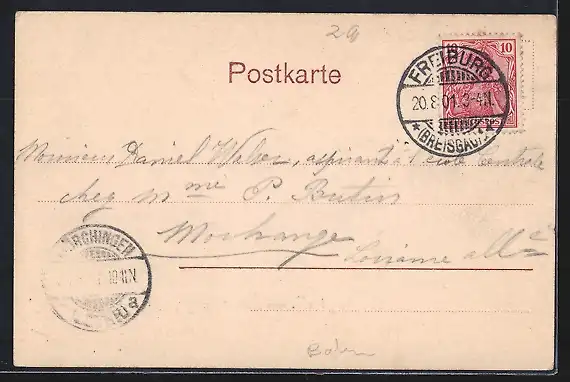 29
Postkarte
10
FREIBURG
20.8.01.3-4N.
* (BREISGAU)
Monsieur Daniel Welser, aspirant à l'école Centrale
chez Mme P. Butin
Morhange
Lorraine allde
MÖRCHINGEN
10-11.V.
a
Baden